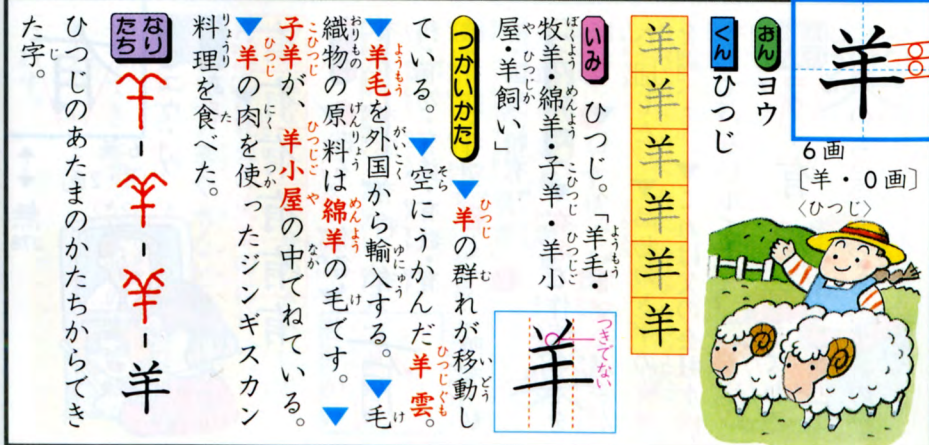 羊
6画
〔羊・0画〕
〈ひつじ〉
おん ヨウ
くん ひつじ
羊羊羊羊羊羊
いみ ひつじ。「羊毛・
牧羊・綿羊・子羊・羊小
屋・羊飼い」
つきでない
羊
つかいかた ▼羊の群れが移動し
ている。▼空にうかんだ羊雲。
▼羊毛を外国から輸入する。▼毛
織物の原料は綿羊の毛です。▼
子羊が、羊小屋の中でねている。
▼羊の肉を使ったジンギスカン
料理を食べた。
なりたち
羊
ひつじのあたまのかたちからでき
た字。